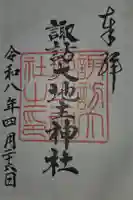 奉拝
諏訪大地主神社
令和八年四月二十六日